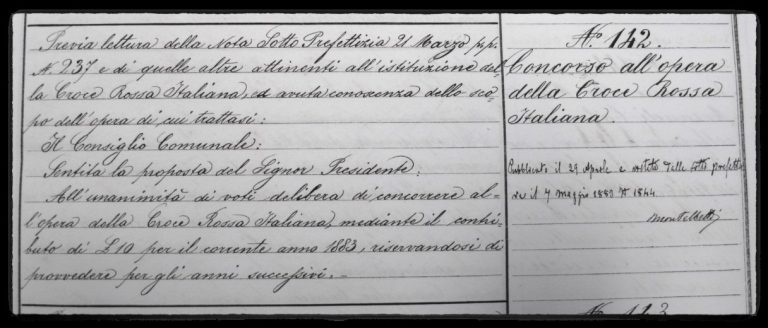 Previa lettura della Nota Sotto Prefettizia 21 Marzo p.p.
N. 237 e di quelle altre attinenti all'istituzione del-
la Croce Rossa Italiana, ed avuta conoscenza dello sco-
po dell'opera di cui trattasi:
Il Consiglio Comunale:
Sentita la proposta del Signor Presidente:
All'unanimità di voti delibera di concorrere al-
l'opera della Croce Rossa Italiana, mediante il contri-
buto di L 10 per il corrente anno 1883, riservandosi di
provvedere per gli anni successivi. =
N. 142.
Concorso all'opera
della Croce Rossa
Italiana.
Pubblicato il 29 Aprile e vistato dalla sotto prefettu-
ra il 7 maggio 1883 N 1844.
N. 113